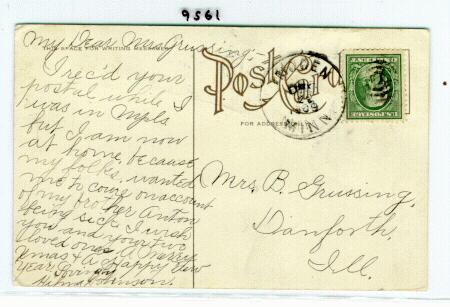 9561
My Dear Mrs Grussing:-
THIS SPACE FOR WRITING MESSAGES
Post Card
FOR ADDRESS
I rec'd your
postal while I
was in Mpls
but I am now
at home, because
my folks wanted
me to come on account
of my brother Anton
being sick. I wish
you and your two
loved ones A Merry
Xmas & A Happy New
Year. Loving
Johnson.
MINN
Mrs. B. Grussing.
Danforth,
Ill.